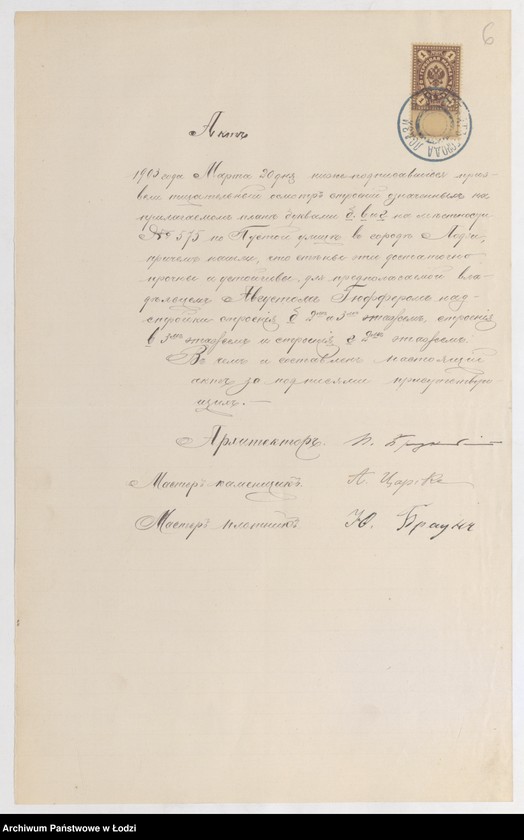 6
Актъ
1903 года Марта 20 дня ниже подписавшiеся произ-
вели тщательный осмотръ строенiй означенныхъ на
прилагаемомъ планѣ буквами б, в и г на мѣстности
№ 575 по Пустой улицѣ въ городѣ Лодзи,
причемъ нашли, что стѣны эти достаточно
прочны и устойчивы для предполагаемой вла-
дѣльцемъ Августомъ Гюфферомъ над-
стройки строенiя б 2мъ и 3мъ этажемъ, строенiя
в 3мъ этажемъ и строенiя г 2мъ этажемъ.
Въ чемъ и составленъ настоящiй
актъ за подписями присутствую-
щихъ. —
Архитекторъ.
Мастеръ каменщикъ. А. Царске
Мастеръ плотникъ Ю. Браунъ
Archiwum Państwowe w Łodzi